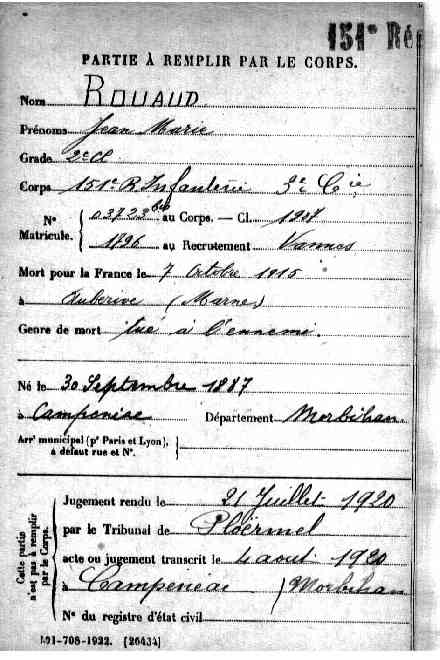 151e Ré
PARTIE À REMPLIR PAR LE CORPS.
Nom ROUAUD
Prénoms Jean Marie
Grade 2e Cl
Corps 151e R. Infanterie 3e Cie
N° Matricule. { 03723 bis au Corps. — Cl. 1907
1796 au Recrutement Vannes
Mort pour la France le 7 Octobre 1915
à Auberive (Marne)
Genre de mort tué à l'ennemi.
Né le 30 Septembre 1887
à Campénéac Département Morbihan.
Arrt municipal (pr Paris et Lyon), à défaut rue et N°.
Cette partie n'est pas à remplir par le Corps.
Jugement rendu le 21 Juillet 1920
par le Tribunal de Ploërmel
acte ou jugement transcrit le 4 aout 1920
à Campeneac (Morbihan
N° du registre d'état civil
101-708-1922. [26434]